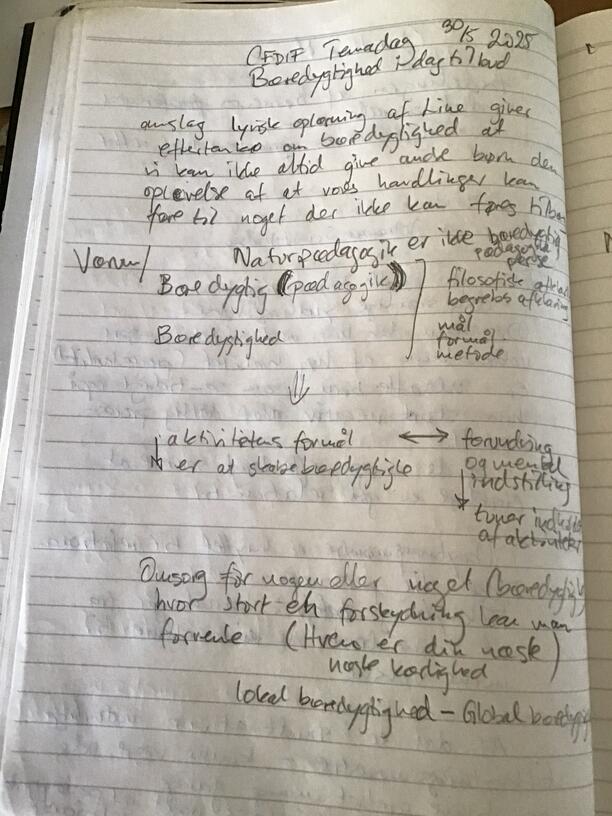 30/5 2025
CEDIF Temadag
Bæredygtighed i dagtilbud
anslag lyrisk oplæsning af Line giver
eftertanke om bæredygtighed at
vi kan ikke altid give andre børn den
oplevelse af at vores handlinger kan
føre til noget der ikke kan føres tilbage
Naturpædagogik er ikke bæredygtig
pædagogik
per se
Bæredygtig (pædagogik)
filosofisk
begrebs afklaring
Bæredygtighed
mål
formål
metode
aktivitetens formål ↔ forundring
er at skabe bæredygtige
og mental
indstilling
af aktiviteter
Omsorg for nogen eller noget (bæredygtighed
hvor stort en forskydning kan man
forvente (Hvem er din næste)
næste kærlighed
lokal bæredygtighed – Global bæredygtig